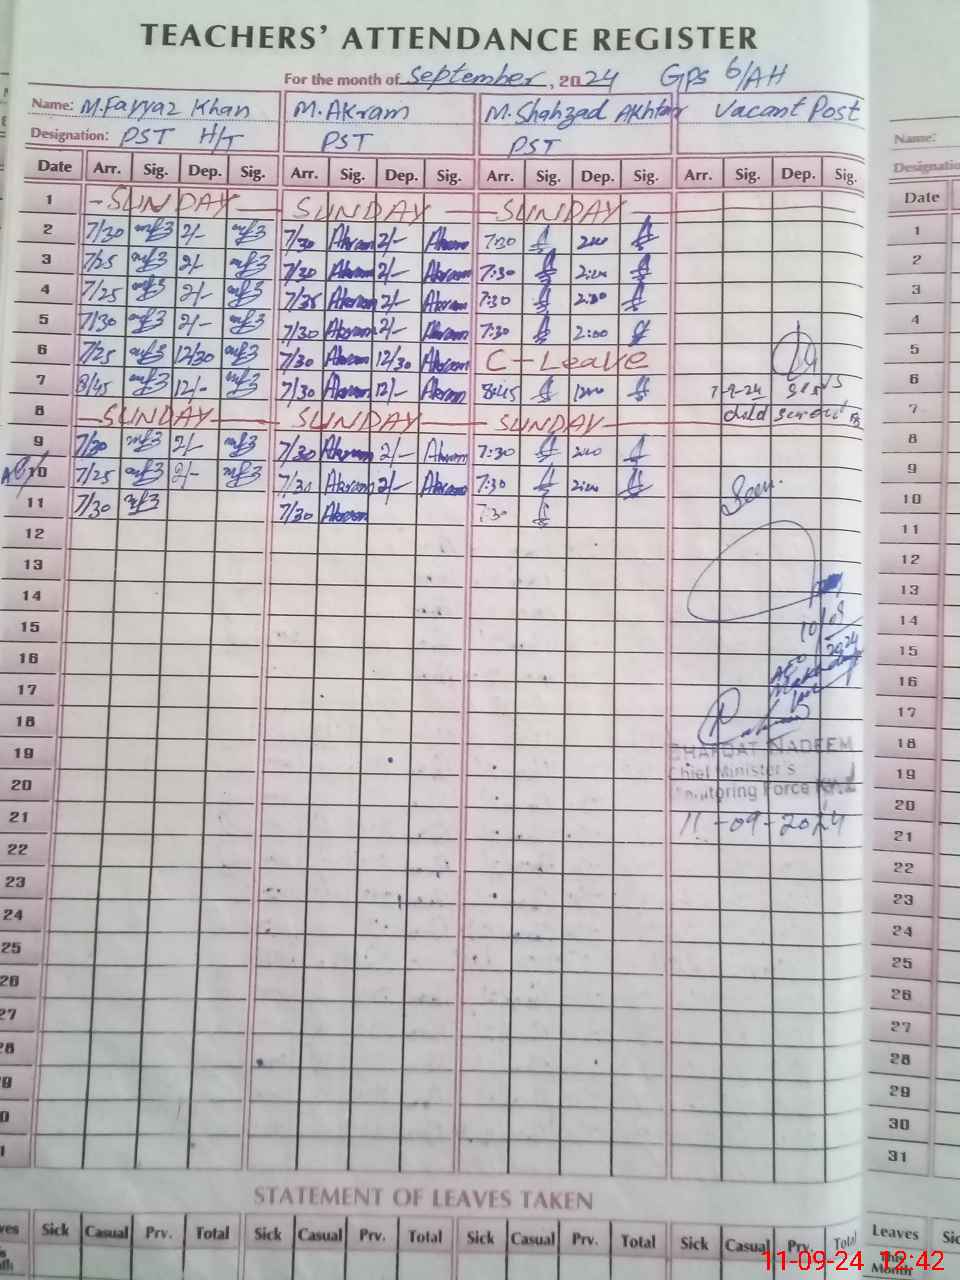 TEACHERS' ATTENDANCE REGISTER
For the month of September, 2024 GPS 6/AH
Name: M.Fayyaz Khan M.Akram M.Shahzad Akhtar Vacant Post
Designation: PST H/T PST PST
Date Arr. Sig. Dep. Sig. Arr. Sig. Dep. Sig. Arr. Sig. Dep. Sig. Arr. Sig. Dep. Sig.
1 SUNDAY SUNDAY SUNDAY
2 7/30 2/- 7/30 Akram 2/- Akram 7:30 2:00
3 7/25 2/- 7/30 Akram 2/- Akram 7:30 2:00
4 7/25 2/- 7/35 Akram 2/- Akram 7:30 2:00
5 7/30 2/- 7/30 Akram 2/- Akram 7:30 2:00
6 7/25 12/30 7/30 Akram 12/30 Akram C-Leave
7 8/45 12/- 7/30 Akram 12/- Akram 8:45 1200 7-9-24
8 SUNDAY SUNDAY SUNDAY
9 7/30 2/- 7/30 Akram 2/- Akram 7:30 200
10 7/25 2/- 7/30 Akram 2/- Akram 7:30 2:00 Seen.
11 7/30 7/30 Akram 7:30
12
13
14
15 10/09
16 2024
17
18
19 NADEEM
Chief Minister's
20 Monitoring Force
21 11-09-2024
22
23
24
25
26
27
28
29
30
31
STATEMENT OF LEAVES TAKEN
Leaves Sick Casual Prv. Total Sick Casual Prv. Total Sick Casual Prv. Total Sick Casual Prv. Total
Name:
Designation
Date
1
2
3
4
5
6
7
8
9
10
11
12
13
14
15
16
17
18
19
20
21
22
23
24
25
26
27
28
29
30
31
Leaves
This Month
11-09-24 12:42